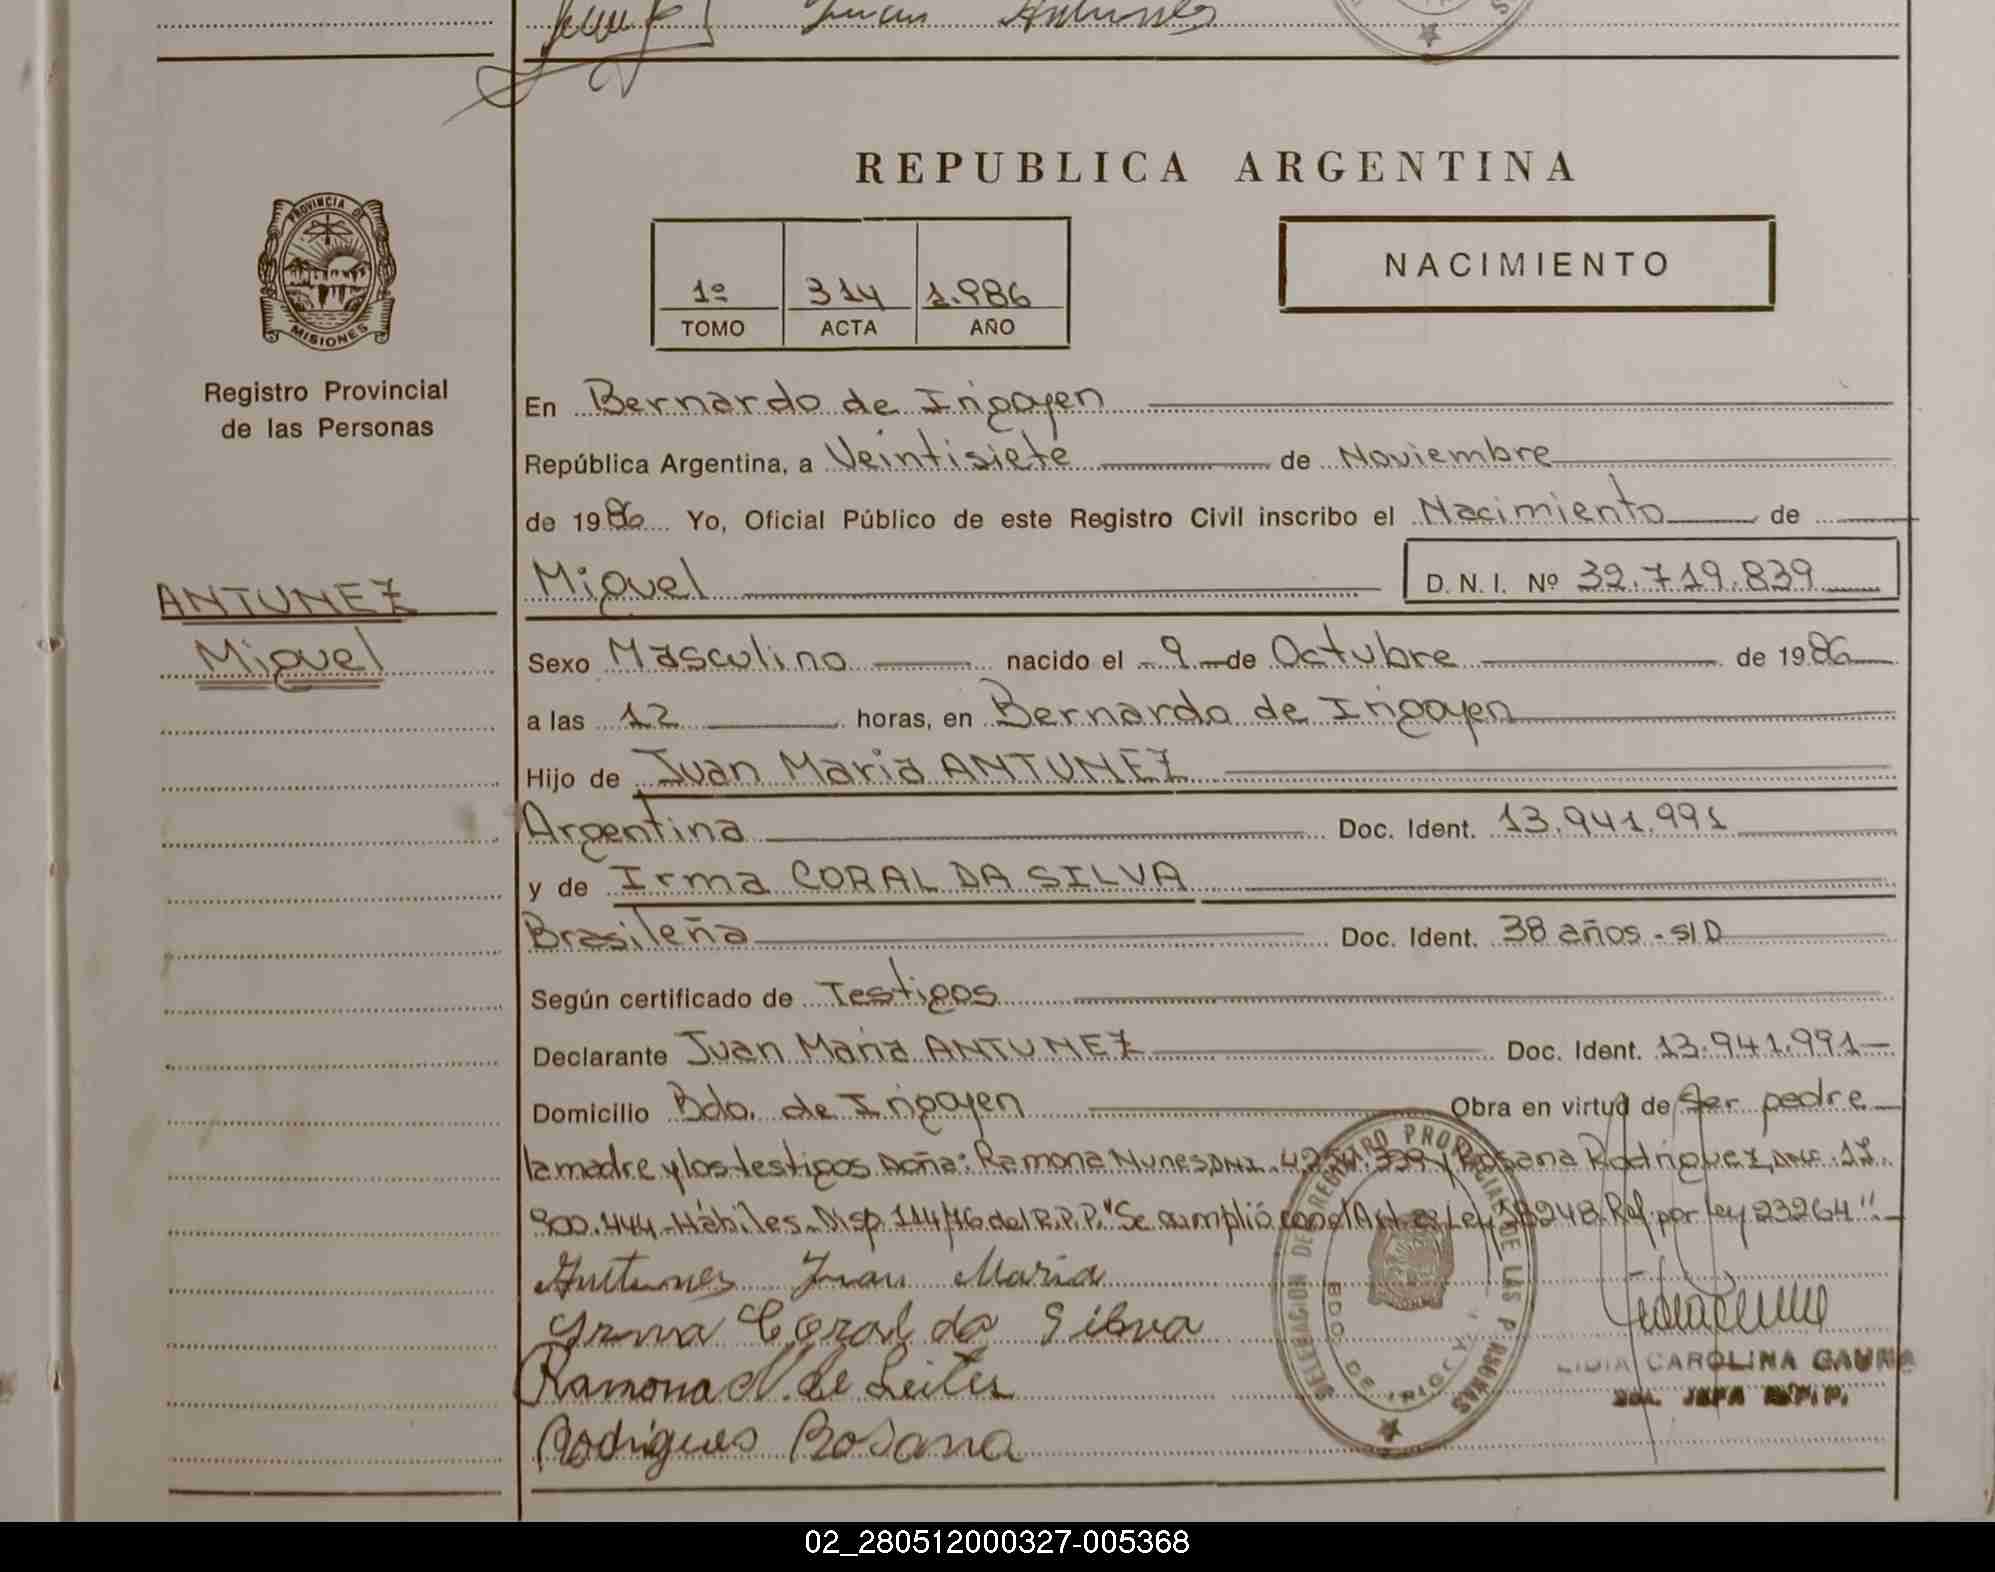 Juan Antunes
REPUBLICA ARGENTINA
PROVINCIA DE
MISIONES
Registro Provincial
de las Personas
NACIMIENTO
1º 314 1.986
TOMO ACTA AÑO
En Bernardo de Irigoyen
República Argentina, a Veintisiete de Noviembre
de 1986 Yo, Oficial Público de este Registro Civil inscribo el Nacimiento de
ANTUNEZ
Miguel
Miguel D. N. I. Nº 32.719.839
Sexo Masculino nacido el 9 de Octubre de 1986
a las 12 horas, en Bernardo de Irigoyen
Hijo de Juan Maria ANTUNEZ
Argentina Doc. Ident. 13.941.991
y de Irma CORAL DA SILVA
Brasileña Doc. Ident. 38 años - S/D
Según certificado de Testigos
Declarante Juan Maria ANTUNEZ Doc. Ident. 13.941.991
Domicilio Bdo. de Irigoyen Obra en virtud de Ser padre
la madre y los testigos Doña: Ramona Nunes DNI. y Rosana Rodriguez, DNI. 17.
900.444 - Hábiles - Disp. 114/76 del R.P.P. "Se cumplió con el Art. Ley 18248 Ref. por ley 23264".-
Antunes Juan Maria
Irma Coral da Silva
Ramona N. de Leites
Rodrigues Rosana
DELEGACION DE REGISTRO PROVINCIAL DE LAS PERSONAS
BDO. DE IRIGOYEN
LIDIA CAROLINA GAUNA
JEFA R.P.P.
02_280512000327-005368